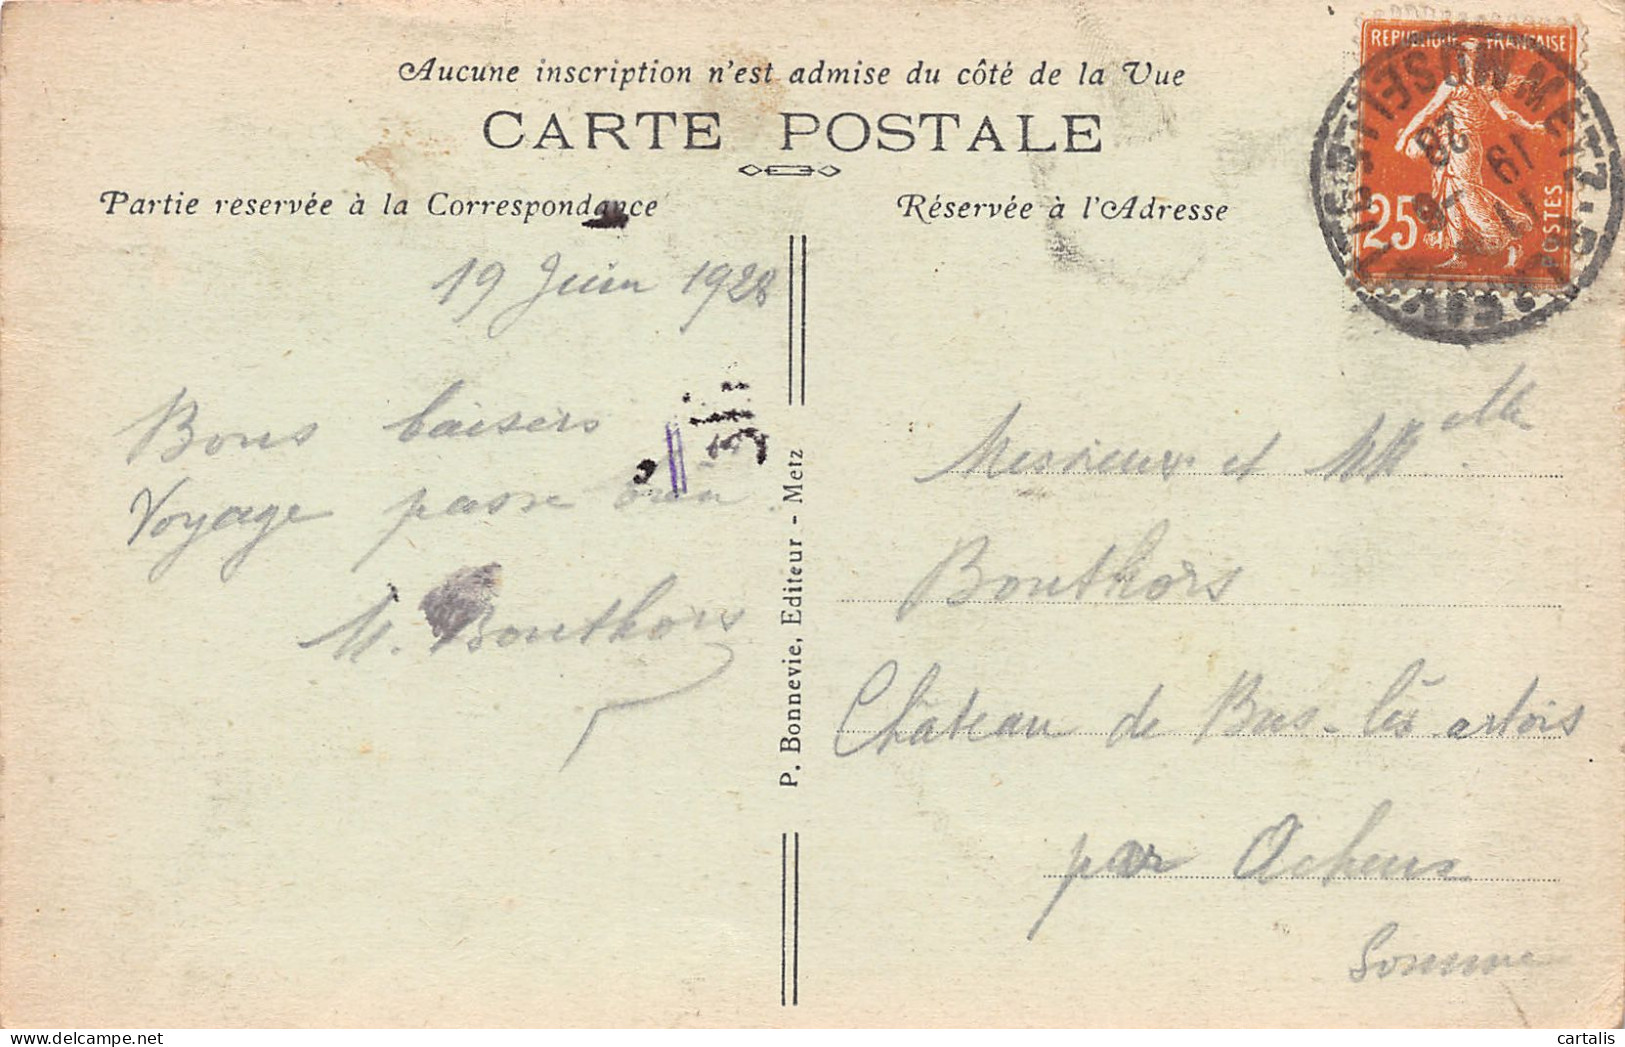 Aucune inscription n'est admise du côté de la Vue
CARTE POSTALE
Partie reservée à la Correspondance
Réservée à l'Adresse
REPUBLIQUE FRANCAISE
25
POSTES
METZ
MOSELLE
19
28
19 Juin 1928
Bons baisers
Voyage passe bien.
M. Bouthors
P. Bonnevie, Editeur - Metz
Messieurs et MM elle
Bouthors
Château de Bus-lès-artois
par Acheux
Somme
cartalis
delcampe.net